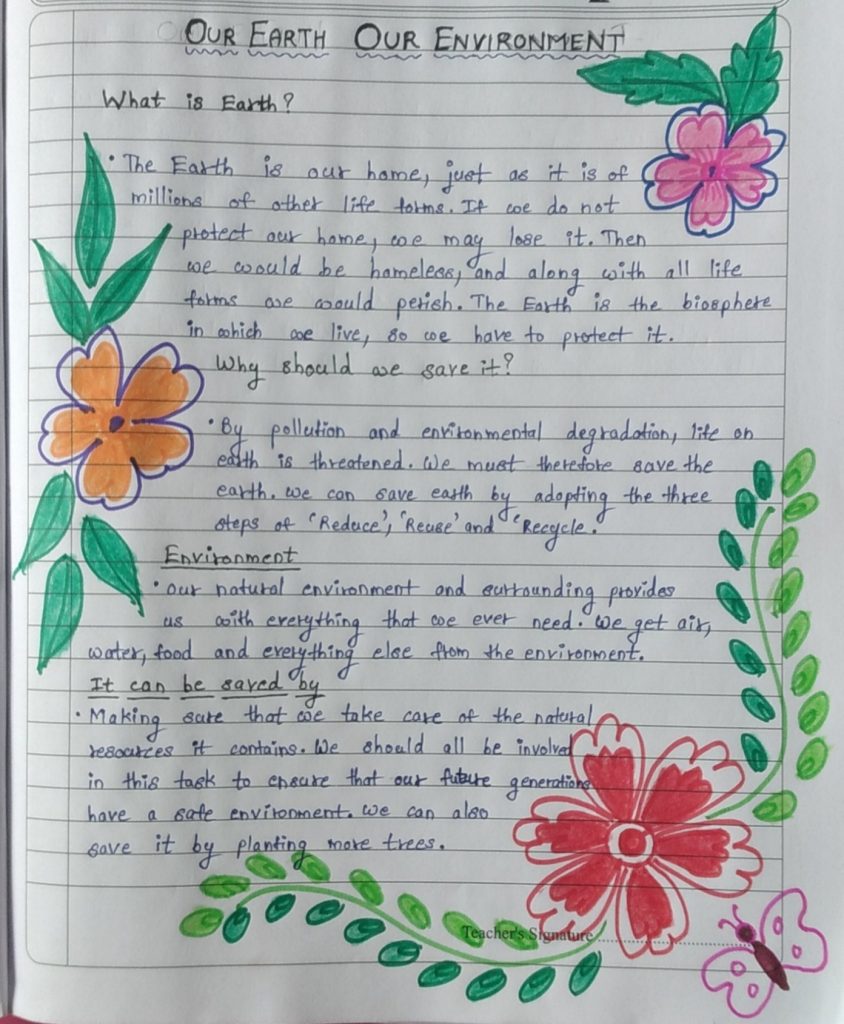 OUR EARTH OUR ENVIRONMENT
What is Earth?
• The Earth is our home, just as it is of
millions of other life forms. If we do not
protect our home, we may lose it. Then
we would be homeless, and along with all life
forms we would perish. The Earth is the biosphere
in which we live, so we have to protect it.
Why should we save it?
• By pollution and environmental degradation, life on
earth is threatened. We must therefore save the
earth. We can save earth by adopting the three
steps of 'Reduce', 'Reuse' and 'Recycle.
Environment
• Our natural environment and surrounding provides
us with everything that we ever need. We get air,
water, food and everything else from the environment.
It can be saved by
• Making sure that we take care of the natural
resources it contains. We should all be involved
in this task to ensure that our future generations
have a safe environment. We can also
save it by planting more trees.
Teacher's Signature